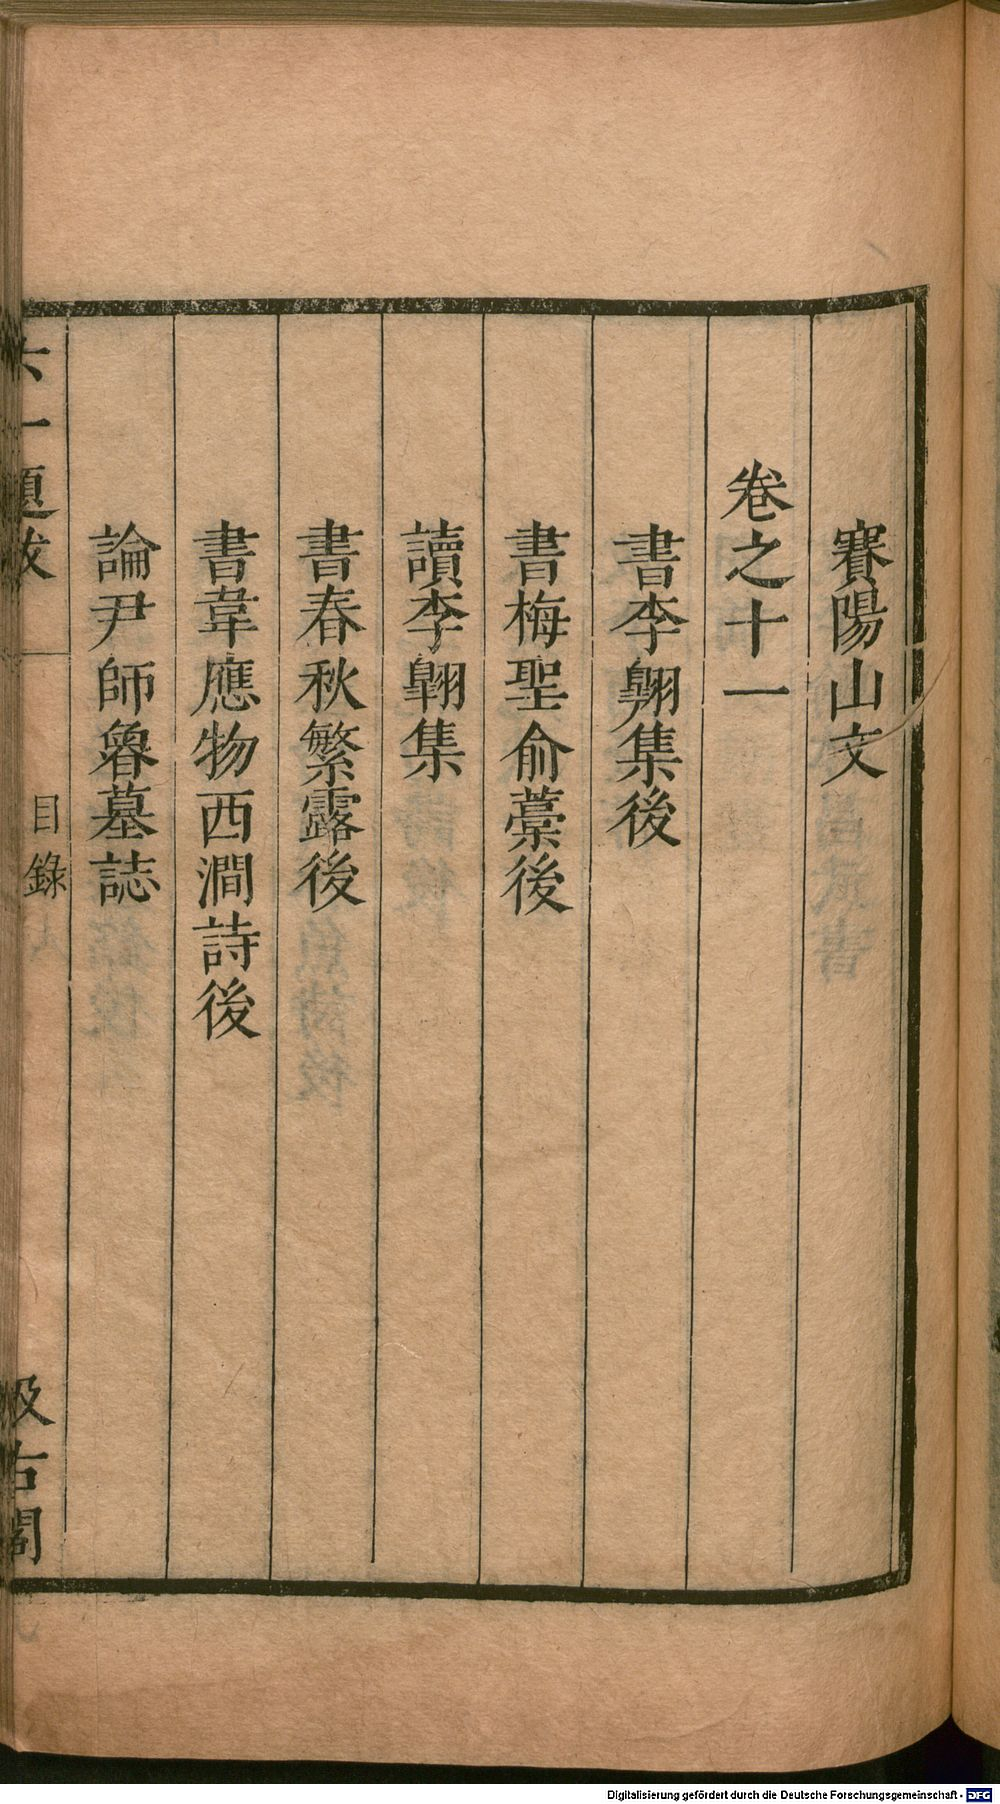 賽陽山文
卷之十一
書李翺集後
書梅聖俞藁後
讀李翺集
書春秋繁露後
書韋應物西澗詩後
論尹師魯墓誌
六一題跋
目錄
汲古閣
Digitalisierung gefördert durch die Deutsche Forschungsgemeinschaft - DFG